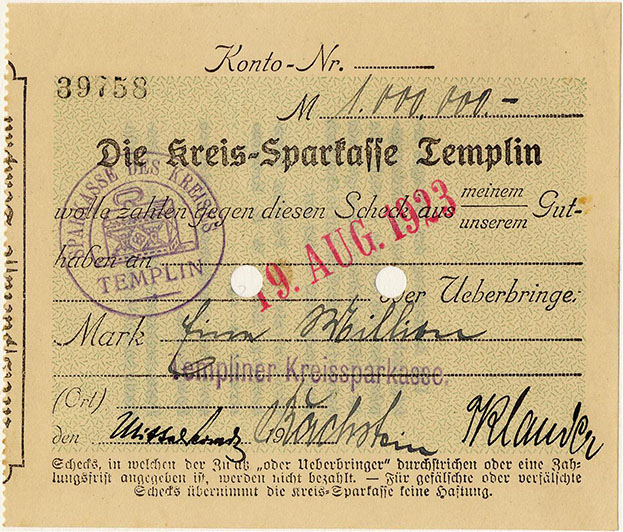 Konto-Nr.
39758
M 1.000.000.-
Die Kreis-Sparkasse Templin
SPARKASSE DES KREISES
TEMPLIN
wolle zahlen gegen diesen Scheck aus meinem
unserem Gut-
haben an
19. AUG. 1923
oder Ueberbringer
Mark Eine Million
Templiner Kreissparkasse.
(Ort)
den
Schecks, in welchen der Zusatz „oder Ueberbringer“ durchstrichen oder eine Zah-
lungsfrist angegeben ist, werden nicht bezahlt. — Für gefälschte oder verfälschte
Schecks übernimmt die Kreis-Sparkasse keine Haftung.